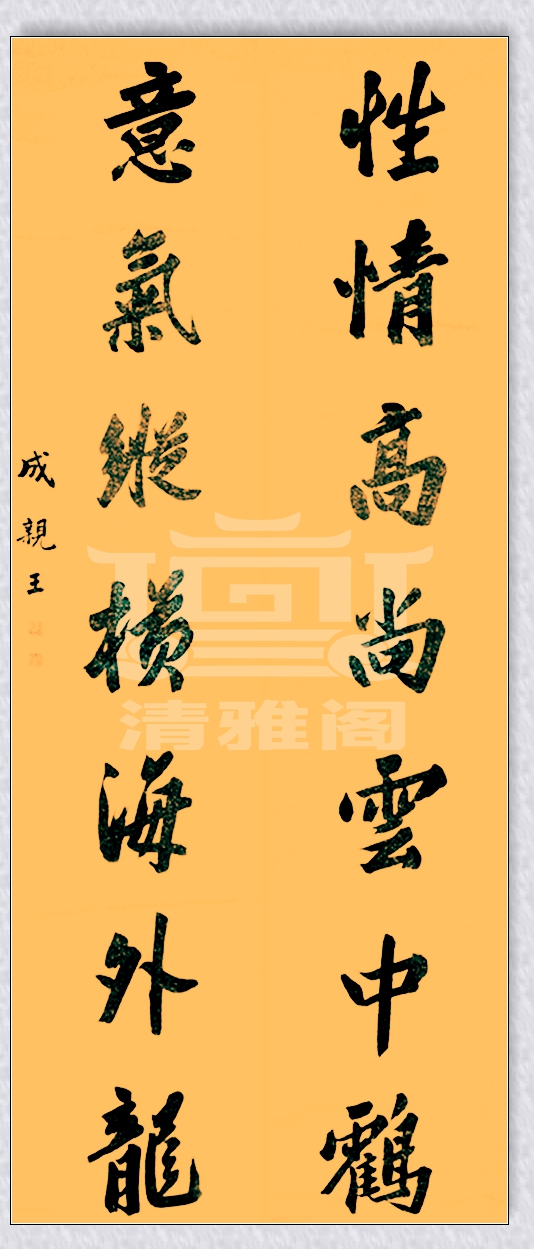 性情高尚雲中鶴
意氣縱横海外龍
成親王
清雅阁